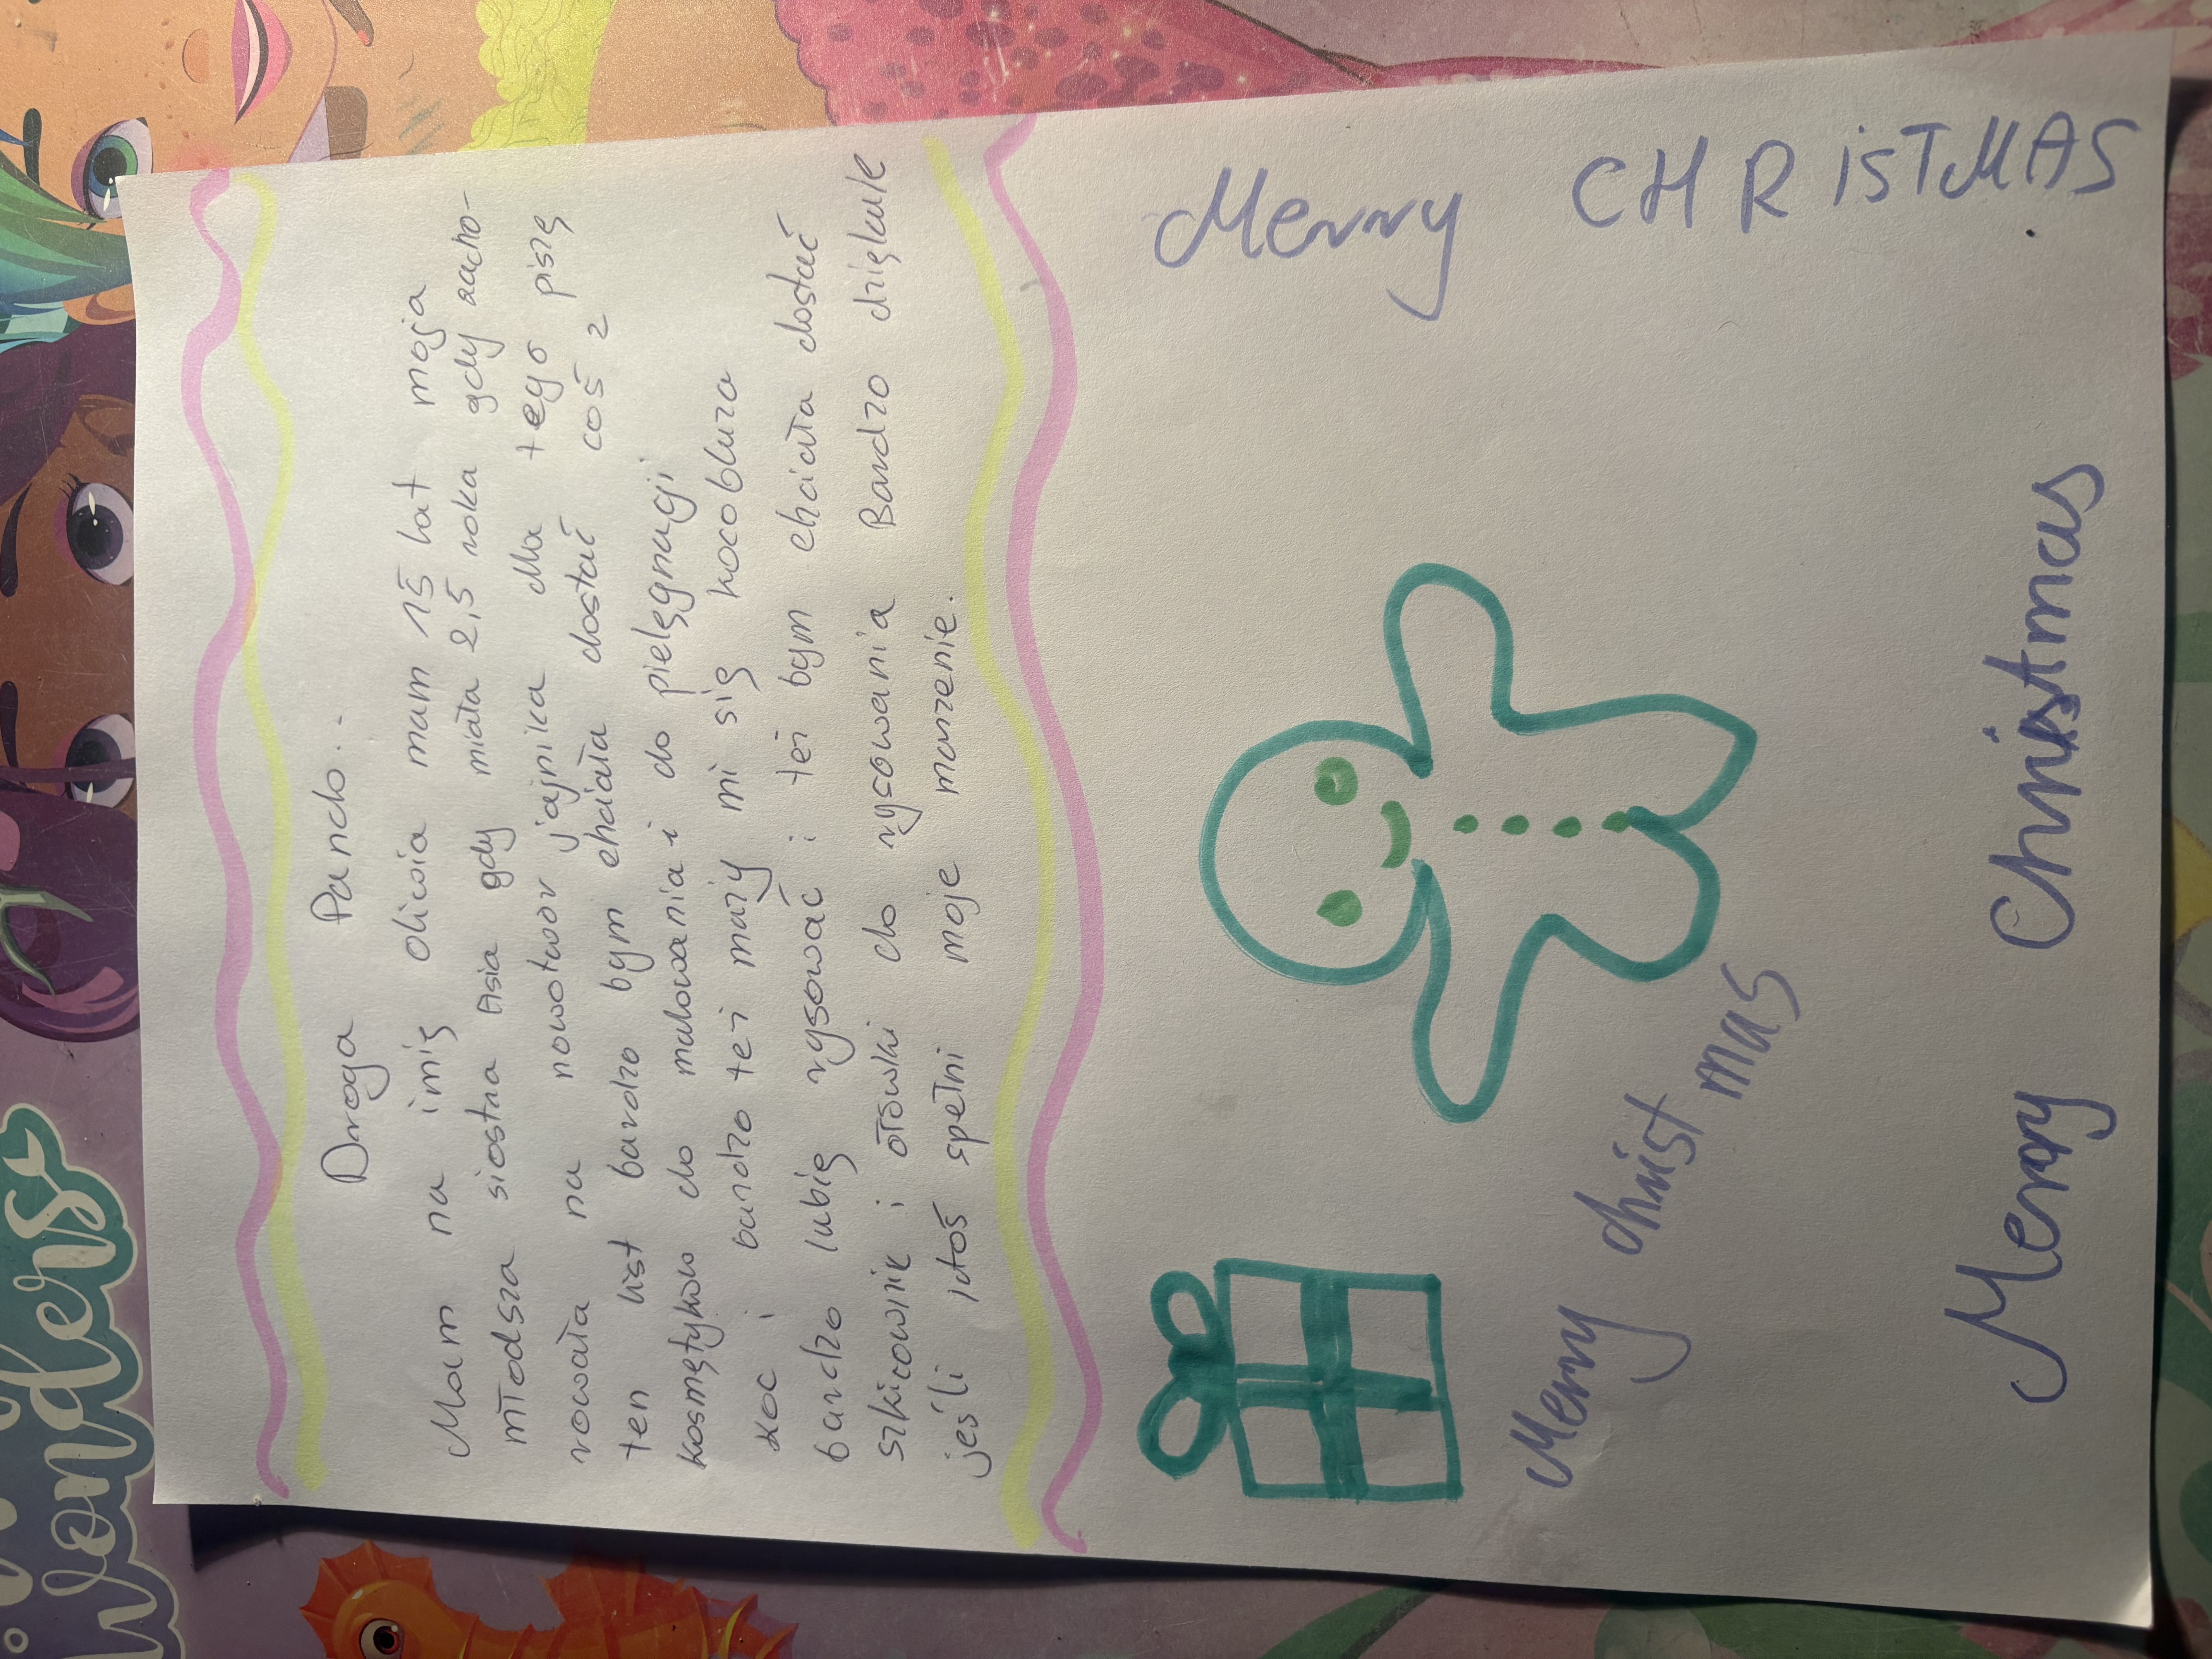 Droga Pando..
Mam na imię oliwia mam 15 lat moja
młodsza siostra Asia gdy miała 2,5 roka gdy zacho-
rowała na nowotwór jajnika dla tego piszę
ten list bardzo bym chciała dostać coś z
kosmetyków do malowania i do pielęgnagi
i bardzo też mazy mi się kocobluza
koc
bardzo lubię rysować i też bym chciała dostać
szkicownik i ołówki do rysowania Bardzo dziękule
jeśli ktoś spełni moje marzenie.
Merry CHRiSTMAS
Merry christ mas
Merry Christmas
Wonders